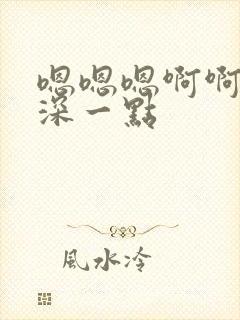 嗯嗯嗯啊啊
深一點
風水冷